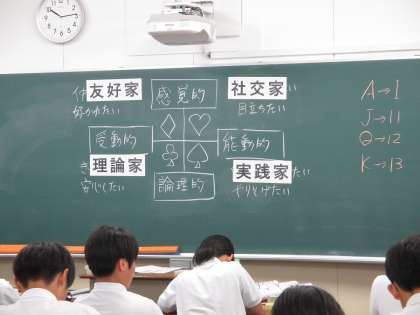 友好家
感覚的
社交家
い
好かれたい
目立ちたい
受動的
能動的
理論家
実践家
たい
安心したい
論理的
やりとげたい
A→1
J→11
Q→12
K→13